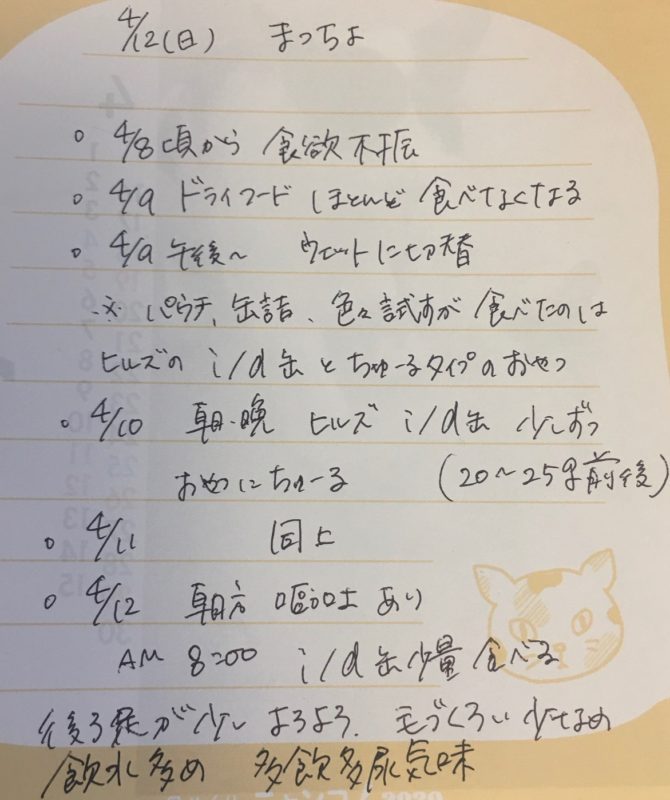 4/12(日) まっちょ
○ 4/8頃から 食欲不振
○ 4/9 ドライフード ほとんど 食べなくなる
○ 4/9 午後〜 ウェットに切替
※ パウチ、缶詰、色々試すが 食べたのは
ヒルズの i/d缶 と ちゅーるタイプのおやつ
○ 4/10 朝・晩 ヒルズ i/d缶 少しずつ
おやつにちゅーる (20〜25g前後)
○ 4/11 同上
○ 4/12 朝方 嘔吐 あり
AM 8:00 i/d缶少量 食べる
後ろ足が少し よろよう、毛づくろい 少なめ
飲水多め 多飲多尿気味